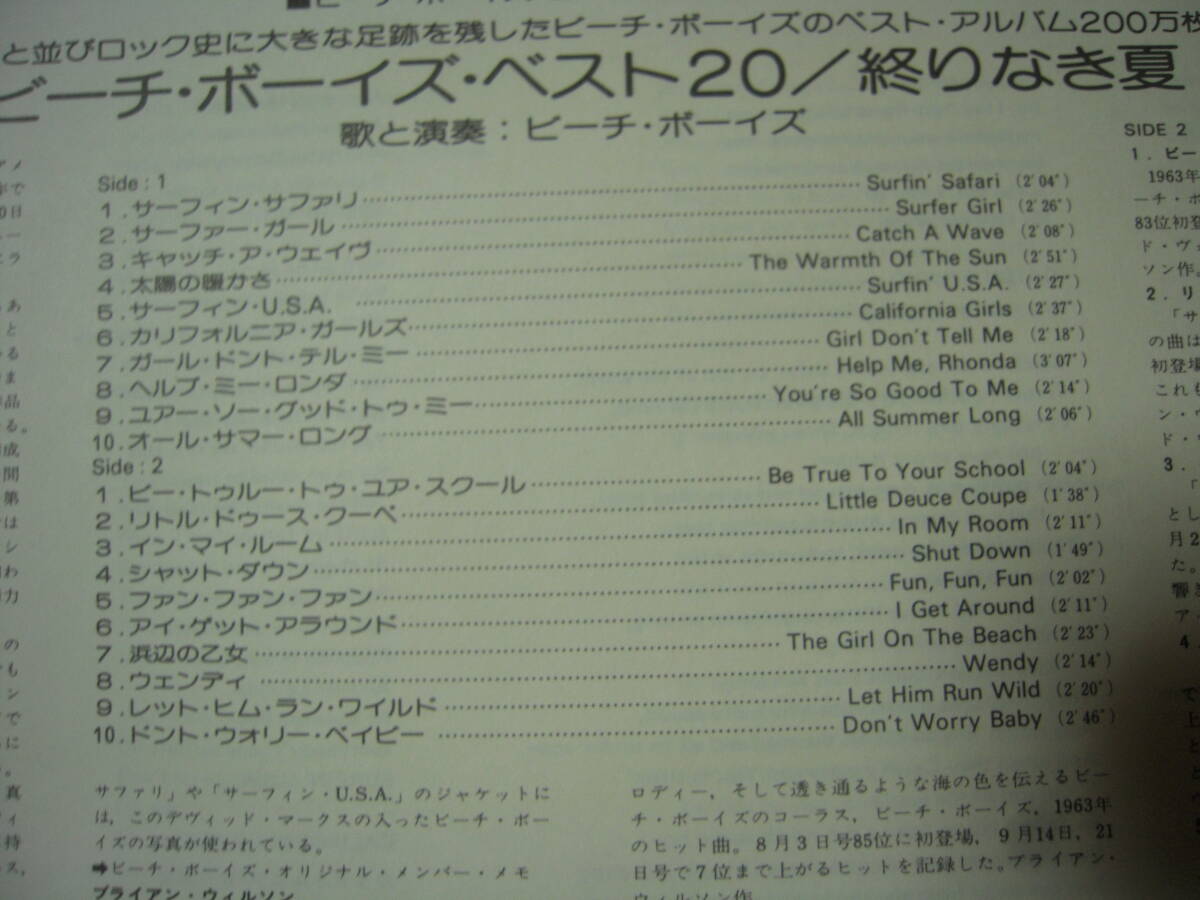 と並びロック史に大きな足跡を残したビーチ・ボーイズのベスト・アルバム200万枚
ビーチ・ボーイズ・ベスト20/終りなき夏
歌と演奏:ビーチ・ボーイズ
Side : 1
1.サーフィン・サファリ Surfin' Safari (2'04")
2.サーファー・ガール Surfer Girl (2'26")
3.キャッチ・ア・ウェイヴ Catch A Wave (2'08")
4.太陽の暖かさ The Warmth Of The Sun (2'51")
5.サーフィン・U.S.A. Surfin' U.S.A. (2'27")
6.カリフォルニア・ガールズ California Girls (2'37")
7.ガール・ドント・テル・ミー Girl Don't Tell Me (2'18")
8.ヘルプ・ミー・ロンダ Help Me, Rhonda (3'07")
9.ユアー・ソー・グッド・トゥ・ミー You're So Good To Me (2'14")
10.オール・サマー・ロング All Summer Long (2'06")
Side : 2
1.ビー・トゥルー・トゥ・ユア・スクール Be True To Your School (2'04")
2.リトル・ドゥース・クーペ Little Deuce Coupe (1'38")
3.イン・マイ・ルーム In My Room (2'11")
4.シャット・ダウン Shut Down (1'49")
5.ファン・ファン・ファン Fun, Fun, Fun (2'02")
6.アイ・ゲット・アラウンド I Get Around (2'11")
7.浜辺の乙女 The Girl On The Beach (2'23")
8.ウェンディ Wendy (2'14")
9.レット・ヒム・ラン・ワイルド Let Him Run Wild (2'20")
10.ドント・ウォリー・ベイビー Don't Worry Baby (2'46")
サファリ」や「サーフィン・U.S.A.」のジャケットに
は,このデヴィッド・マークスの入ったビーチ・ボー
イズの写真が使われている。
➡ビーチ・ボーイズ・オリジナル・メンバー・メモ
ブライアン・ウィルソン
ロディー,そして透き通るような海の色を伝えるビー
チ・ボーイズのコーラス,ビーチ・ボーイズ,1963年
のヒット曲。8月3日号85位に初登場,9月14日,21
日号で7位まで上がるヒットを記録した。ブライアン・
ウィルソン作。
SIDE 2
1.ビー
1963年
ーチ・ボ
83位初登
ド・ヴ
ソン作。
2.リ
「サ
の曲は
初登場
これも
ン・ウ
ド・
3.
「
とし
月2
た。
響き
ア
4.